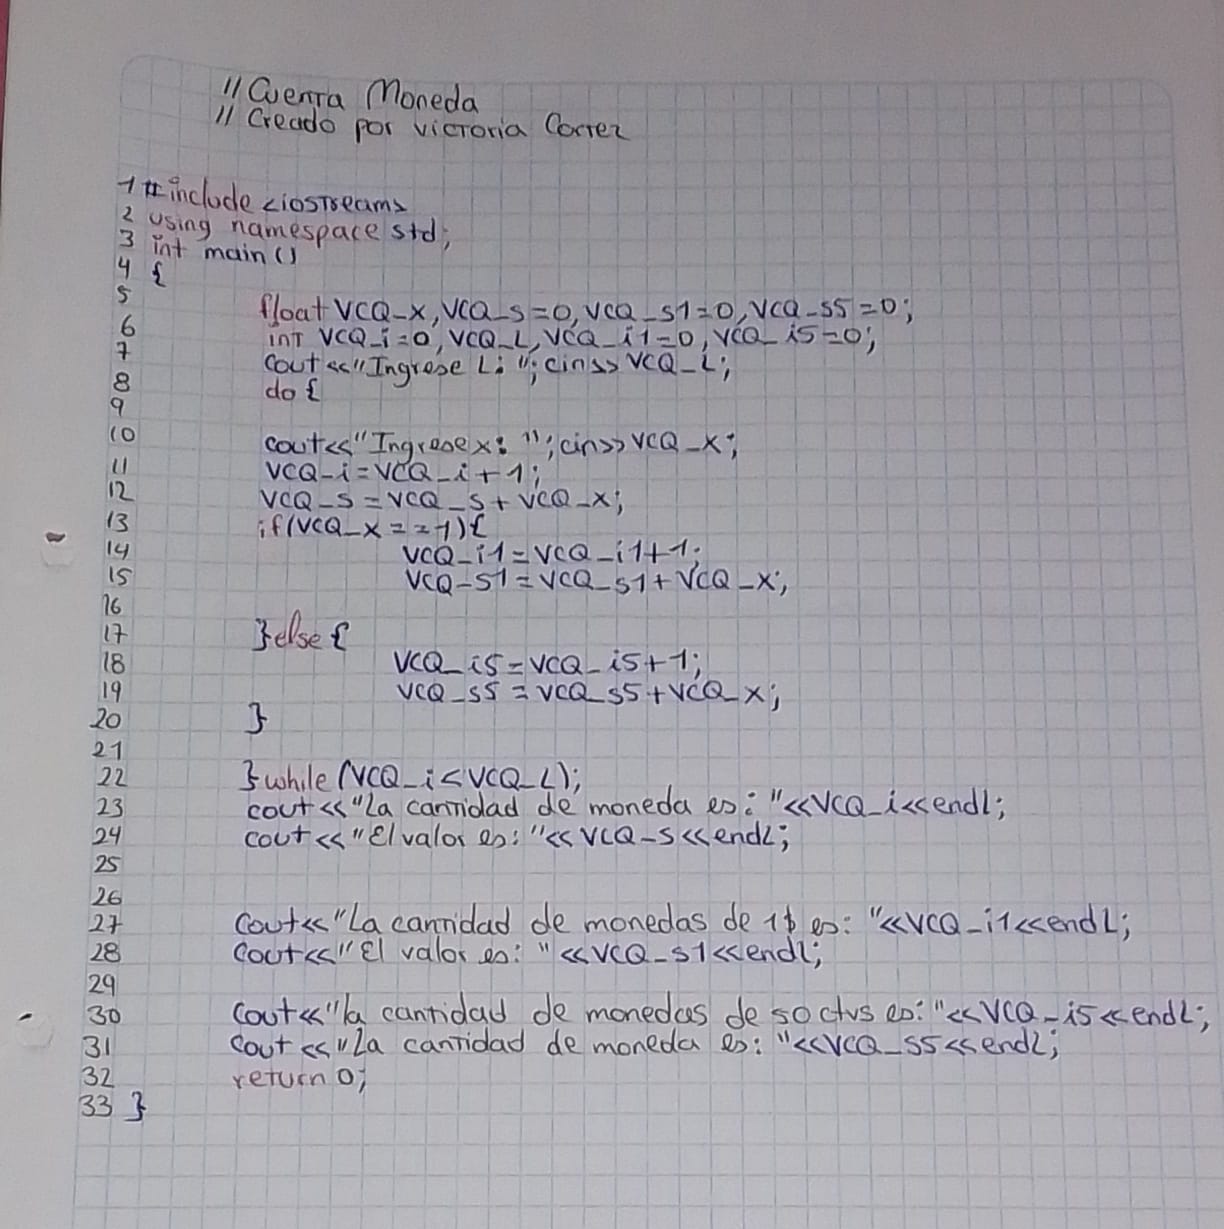 // Cuenta Moneda
// Creado por Victoria Cortez
1 #include <iostream>
2 using namespace std;
3 int main()
4 {
5 float VCQ_x, VCQ_s=0, VCQ_s1=0, VCQ_s5=0;
6 int VCQ_i=0, VCQ_L, VCQ_i1=0, VCQ_i5=0;
7 cout<<"Ingrese L: "; cin>> VCQ_L;
8 do {
9
10 cout<<"Ingrese x: "; cin>> VCQ_x;
11 VCQ_i=VCQ_i+1;
12 VCQ_s=VCQ_s+VCQ_x;
13 if(VCQ_x==1){
14 VCQ_i1=VCQ_i1+1;
15 VCQ_s1=VCQ_s1+VCQ_x;
16
17 }else{
18 VCQ_i5=VCQ_i5+1;
19 VCQ_s5=VCQ_s5+VCQ_x;
20 }
21
22 }while(VCQ_i<VCQ_L);
23 cout<<"La cantidad de moneda es: "<<VCQ_i<<endl;
24 cout<<"El valor es: "<<VCQ_s<<endl;
25
26
27 cout<<"La cantidad de monedas de 1$ es: "<<VCQ_i1<<endl;
28 cout<<"El valor es: "<<VCQ_s1<<endl;
29
30 cout<<"la cantidad de monedas de 50 ctvs es: "<<VCQ_i5<<endl;
31 cout<<"La cantidad de moneda es: "<<VCQ_s5<<endl;
32 return 0;
33 }